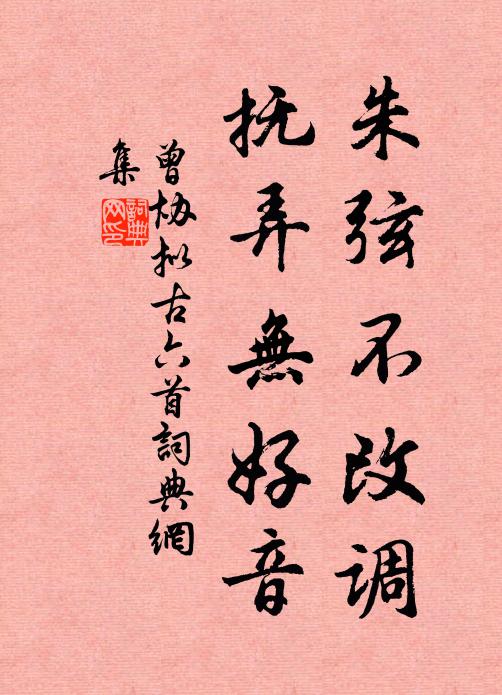 朱弦不改调
抚弄無好音
曾协拟古六首詞典網
集
詞典
网印